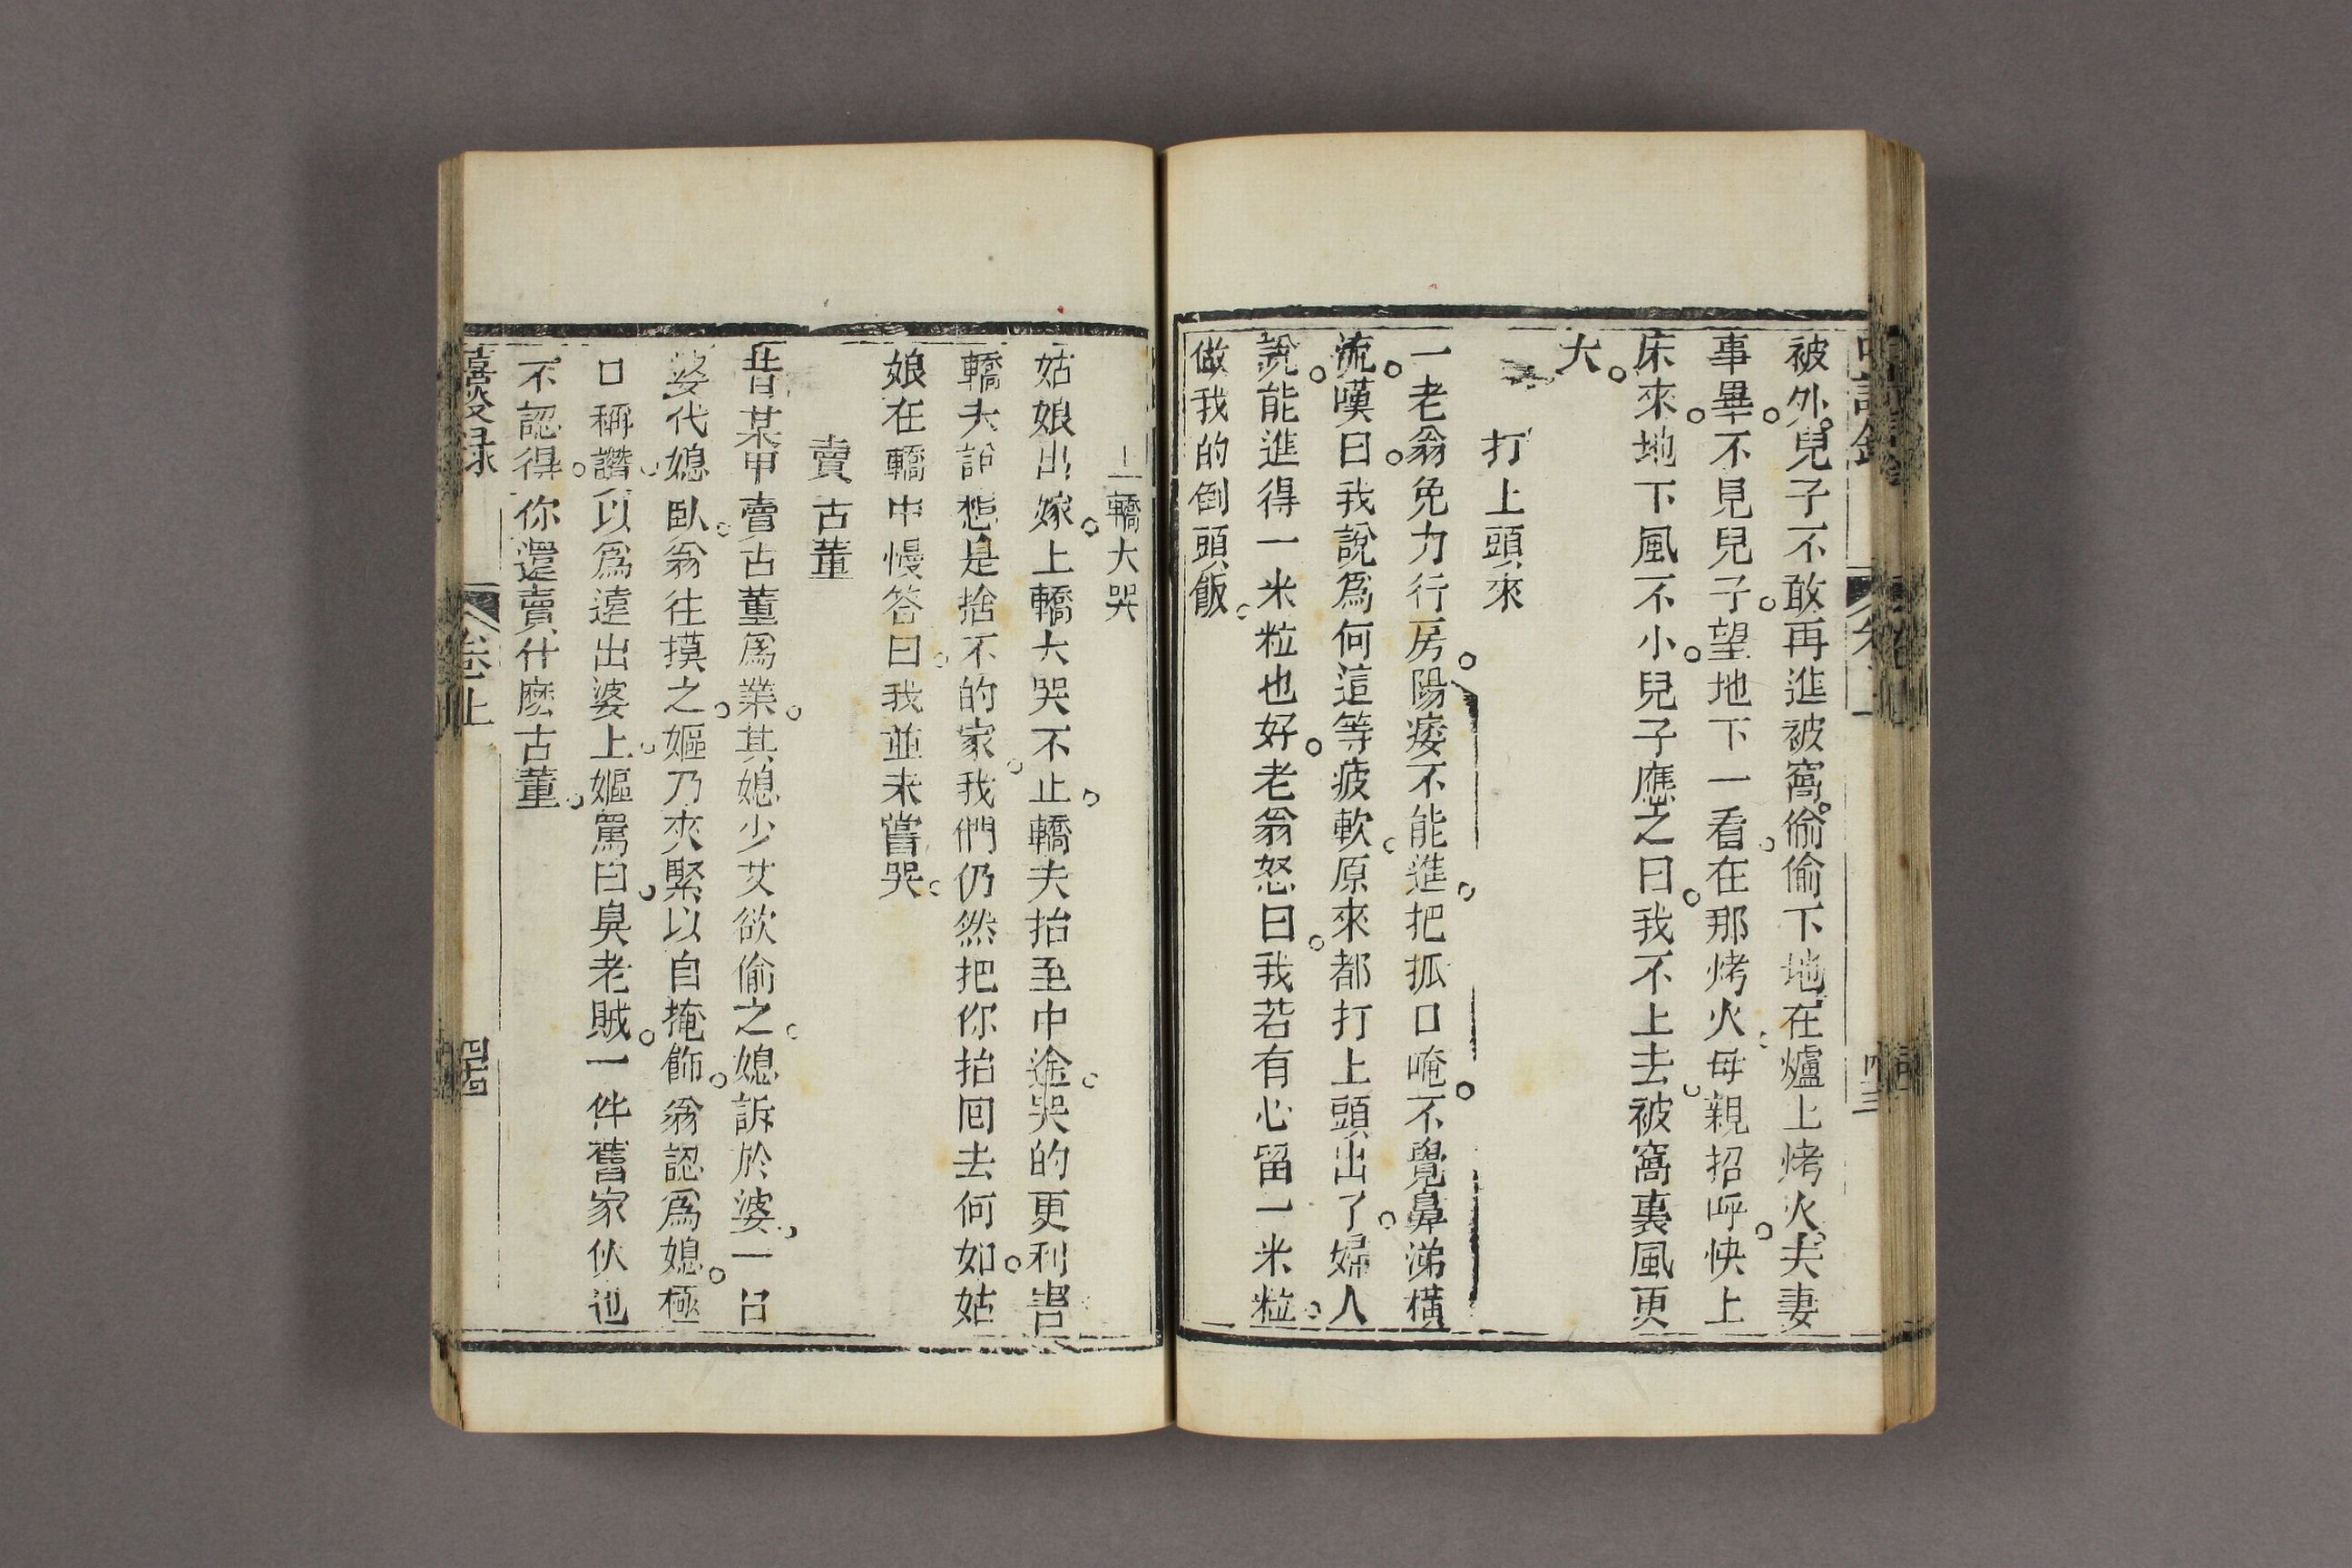 被外兒子不敢再進被窩偷偷下地在爐上烤火夫妻
事畢不見兒子望地下一看在那烤火母親招呼快上
床來地下風不小兒子應之曰我不上去被窩裏風更
大
打上頭來
一老翁免力行房陽痿不能進把抓口唵不覺鼻涕橫
流嘆曰我說爲何這等疲軟原來都打上頭出了婦人
說能進得一米粒也好老翁怒曰我若有心留一米粒
做我的倒頭飯
上轎大哭
姑娘出嫁上轎大哭不止轎夫抬至中途哭的更利害
轎夫說想是捨不的家我們仍然把你抬回去何如姑
娘在轎中慢答曰我並未嘗哭
賣古董
昔某甲賣古董爲業其媳少艾欲偷之媳訴於婆一日
婆代媳臥翁往摸之嫗乃夾緊以自掩飾翁認爲媳極
口稱讚以爲遠出婆上嫗罵曰臭老賊一件舊家伙也
不認得你還賣什麽古董
嘻談録
卷上